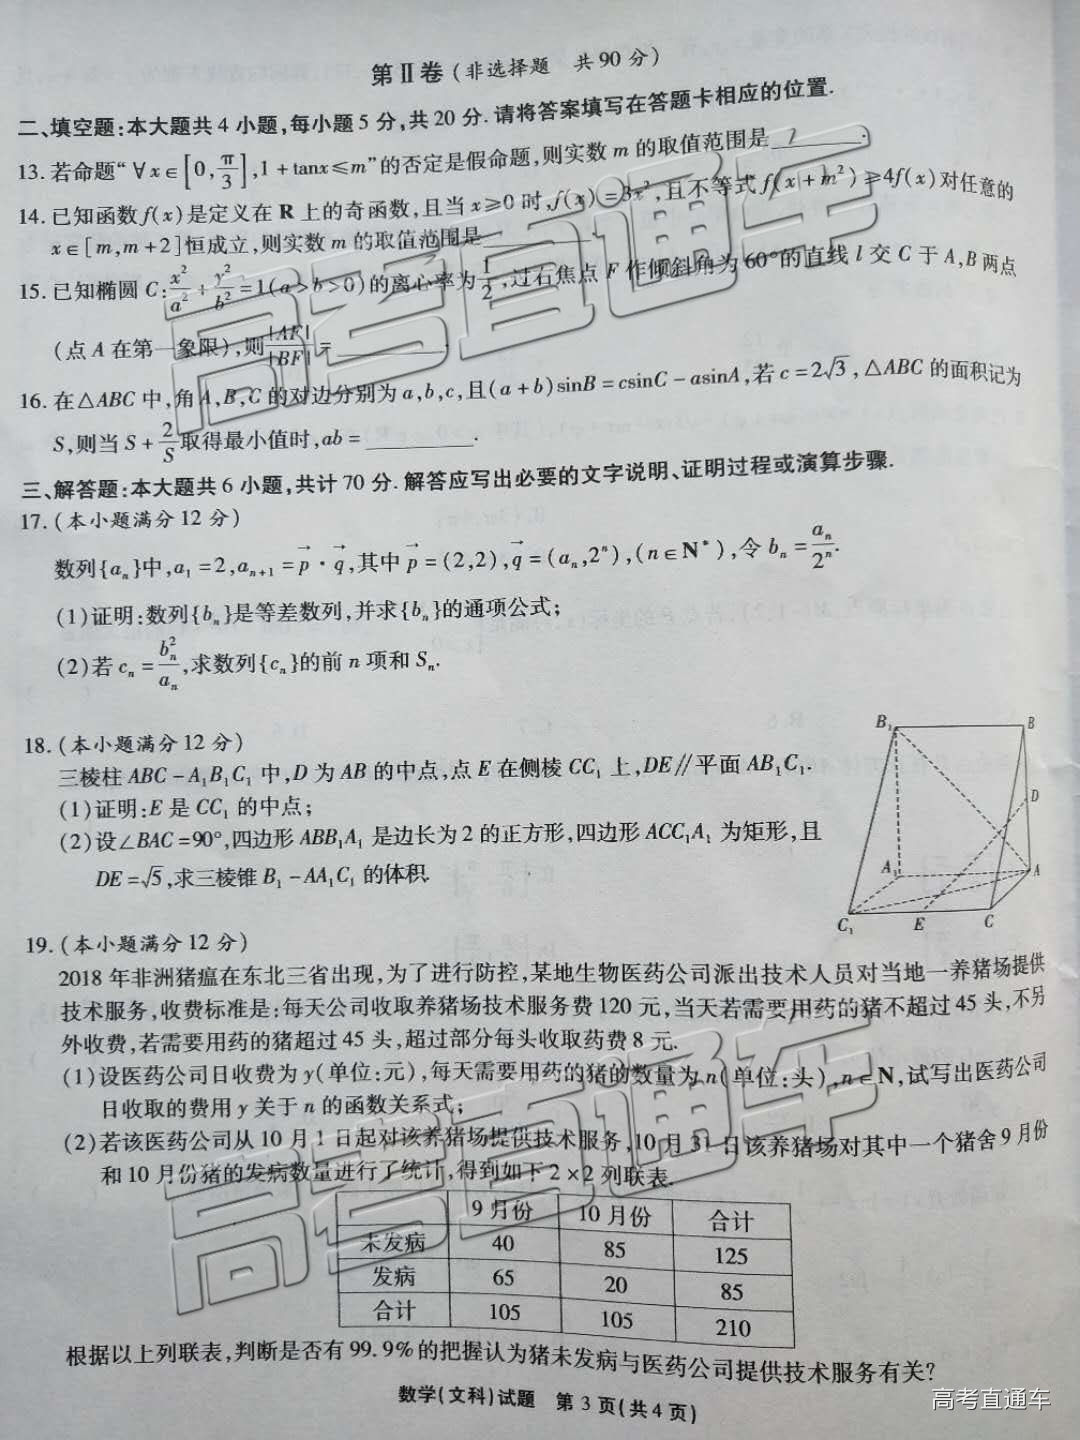 第Ⅱ卷(非选择题 共90分)
二、填空题:本大题共4小题,每小题5分,共20分.请将答案填写在答题卡相应的位置.
13.若命题“∀x∈[0,π/3],1+tanx≤m”的否定是假命题,则实数m的取值范围是______.
14.已知函数f(x)是定义在R上的奇函数,且当x≥0时,f(x)=3x²,且不等式f(x+m²)≥4f(x)对任意的
x∈[m,m+2]恒成立,则实数m的取值范围是______.
15.已知椭圆C:x²/a²+y²/b²=1(a>b>0)的离心率为1/2,过右焦点F作倾斜角为60°的直线l交C于A,B两点
(点A在第一象限),则|AF|/|BF|=______.
16.在△ABC中,角A,B,C的对边分别为a,b,c,且(a+b)sinB=csinC-asinA,若c=2√3,△ABC的面积记为
S,则当S+2/S取得最小值时,ab=______.
三、解答题:本大题共6小题,共计70分.解答应写出必要的文字说明、证明过程或演算步骤.
17.(本小题满分12分)
数列{aₙ}中,a₁=2,aₙ₊₁=p→·q→,其中p→=(2,2),q→=(aₙ,2ⁿ),(n∈N*),令bₙ=aₙ/2ⁿ.
(1)证明:数列{bₙ}是等差数列,并求{bₙ}的通项公式;
(2)若cₙ=bₙ²/aₙ,求数列{cₙ}的前n项和Sₙ.
18.(本小题满分12分)
三棱柱ABC-A₁B₁C₁中,D为AB的中点,点E在侧棱CC₁上,DE∥平面AB₁C₁.
(1)证明:E是CC₁的中点;
(2)设∠BAC=90°,四边形ABB₁A₁是边长为2的正方形,四边形ACC₁A₁为矩形,且
DE=√5,求三棱锥B₁-AA₁C₁的体积.
B₁ B
D
A₁ A
C₁ E C
19.(本小题满分12分)
2018年非洲猪瘟在东北三省出现,为了进行防控,某地生物医药公司派出技术人员对当地一养猪场提供
技术服务,收费标准是:每天公司收取养猪场技术服务费120元,当天若需要用药的猪不超过45头,不另
外收费,若需要用药的猪超过45头,超过部分每头收取药费8元.
(1)设医药公司日收费为y(单位:元),每天需要用药的猪的数量为n(单位:头),n∈N,试写出医药公司
日收取的费用y关于n的函数关系式;
(2)若该医药公司从10月1日起对该养猪场提供技术服务,10月31日该养猪场对其中一个猪舍9月份
和10月份猪的发病数量进行了统计,得到如下2×2列联表.
9月份 10月份 合计
未发病 40 85 125
发病 65 20 85
合计 105 105 210
根据以上列联表,判断是否有99.9%的把握认为猪未发病与医药公司提供技术服务有关?
数学(文科)试题 第3页(共4页)
高考直通车
高考直通车
高考直通车